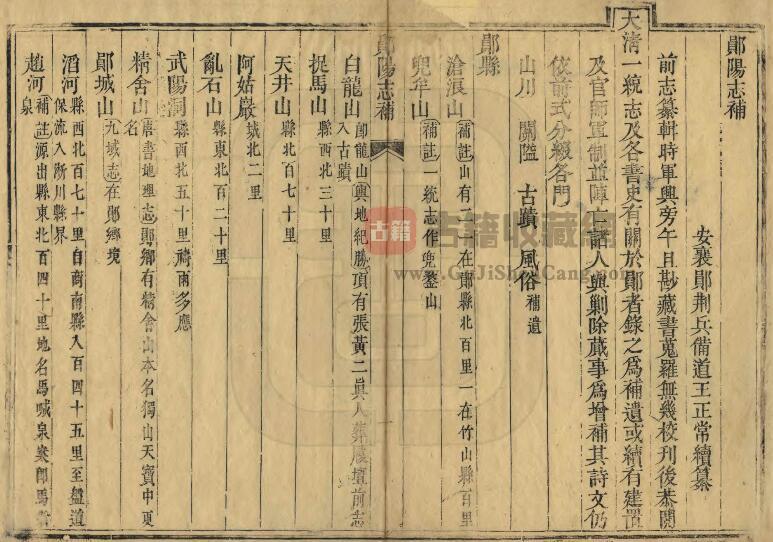 鄖陽志補
安襄鄖荆兵備道王正常續纂
前志纂輯時軍興旁午且尠藏書蒐羅無幾校刊後恭閱
大清一統志及各書史有關於鄖者錄之為補遺或續有建置
及官師置制並陣亡諸人與剿除蕆事為增補其詩文仍
依前式分綴各門
山川 關隘 古蹟 風俗 補遺
鄖縣
滄浪山 補註 山有二一在鄖縣北百里一在竹山縣百里
兜牟山 補註 一統志作兜鍪山
鄖陽志補
白龍山 卽龍山 輿地紀勝 頂有張黃二眞人 前志
入古蹟
捉馬山 縣西北三十里
天井山 縣北百七十里
阿姑巖 城北二里
亂石山 縣東北百二十里
武陽洞 縣西北五十里禱雨多應
精舍山 唐書地理志 鄖鄉有精舍山本名獨山天寶中更
名
鄖城山 九域志 在鄖鄉境
滔河 縣西北百七十里自商南縣入百四十五里至盤道
保流入淅川縣界
趙河 補註 源出縣東北百四十里地名馬喊泉案卽馬
泉
古籍
古籍收藏網
www.GuJiShouCang.com